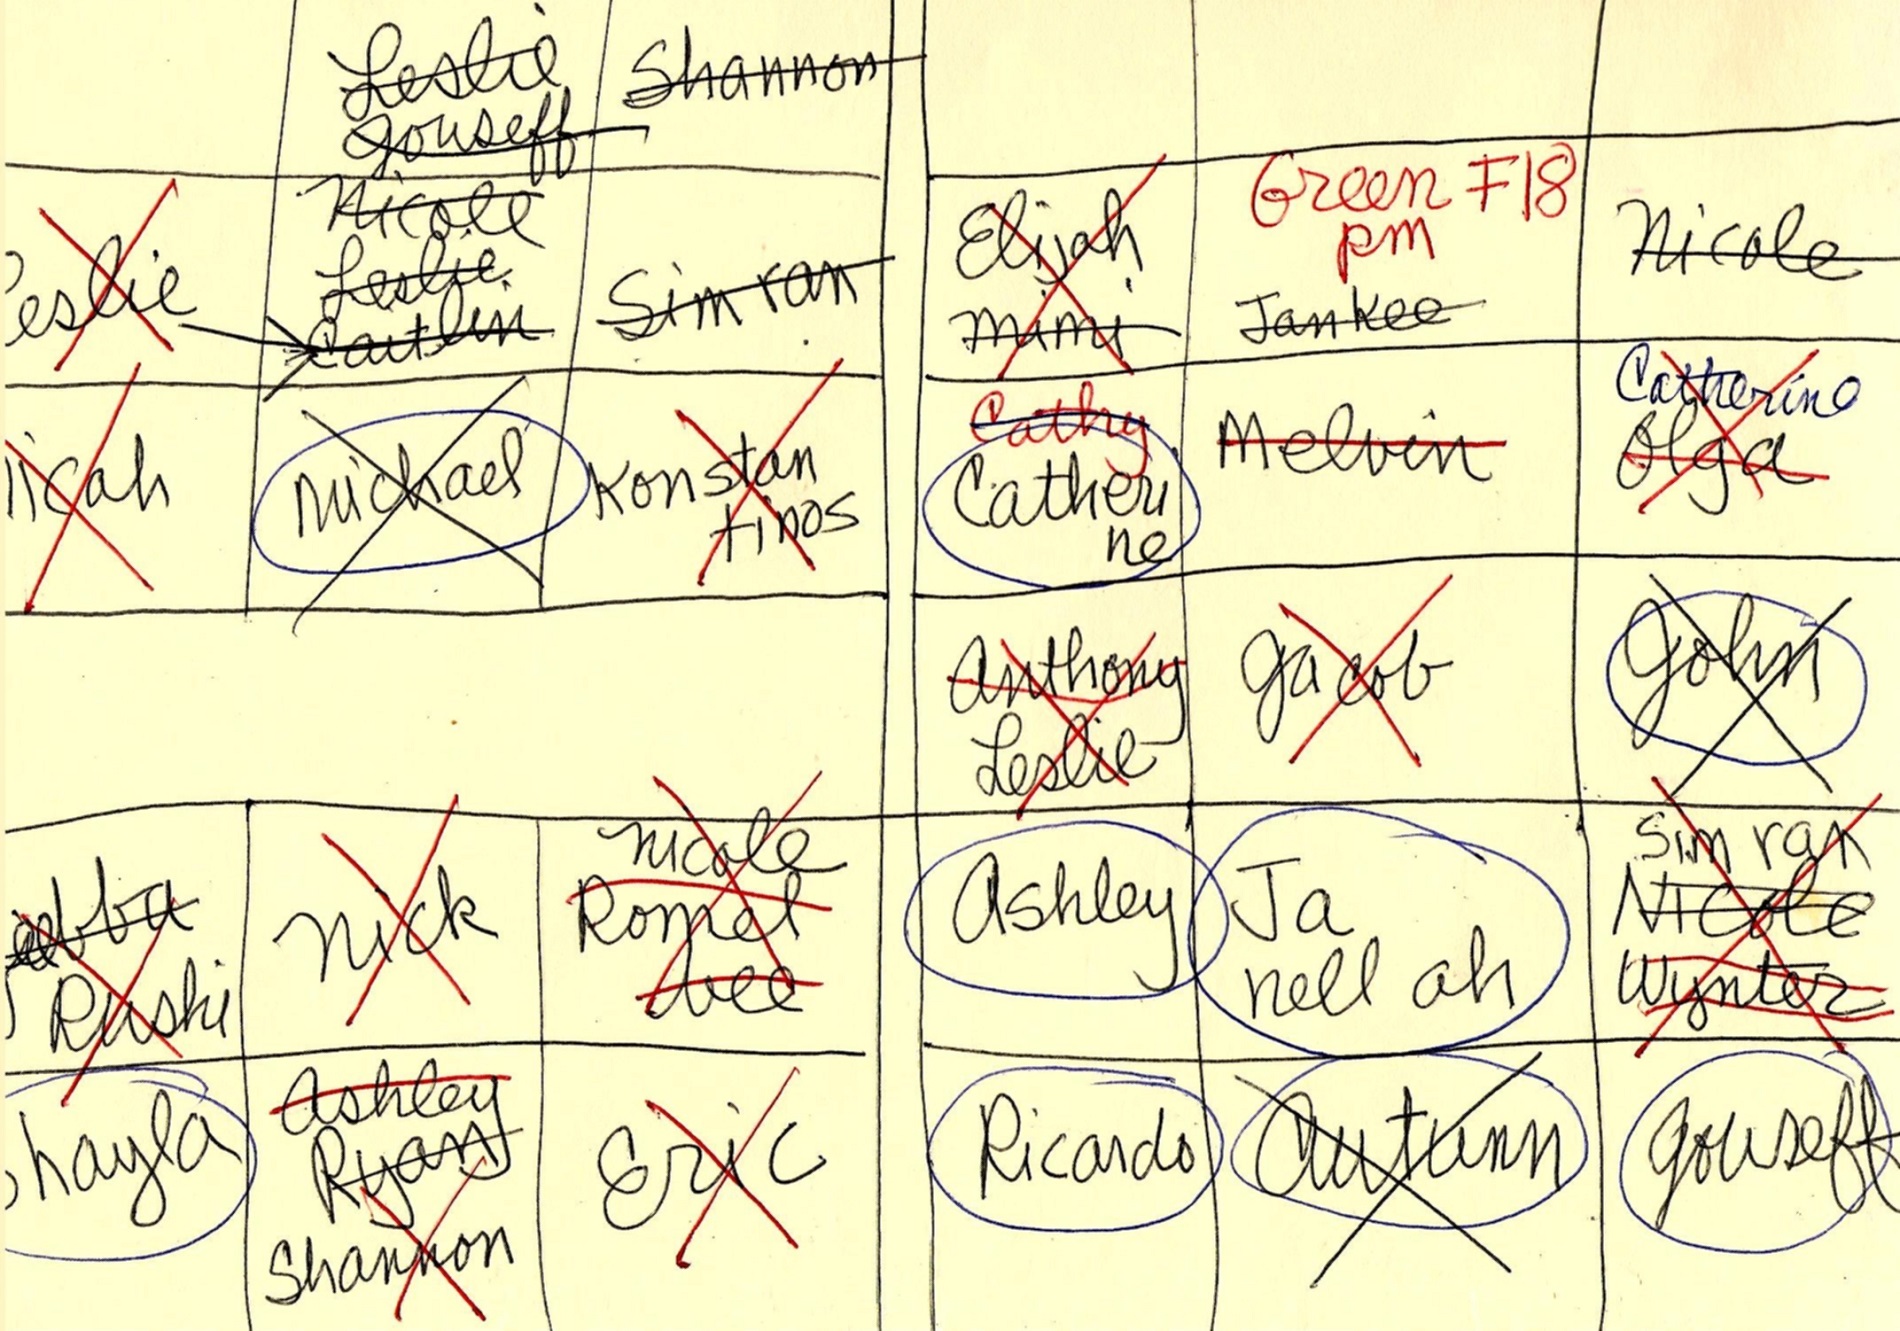 Leslie
Youseff
Shannon
Nicole
Leslie
Caitlin
Leslie
Simran
Elijah
Mimi
Green F18
pm
Jankee
Nicole
Michael
Konstan
tinos
Cathy
Catheri
ne
Melvin
Catherine
Olga
Anthony
Leslie
Jacob
John
Rushi
Nick
Nicole
Romel
Ashley
Ja
nell ah
Simran
Nicole
Wynter
hayla
Ashley
Ryan
Shannon
Eric
Ricardo
Autumn
Youseff